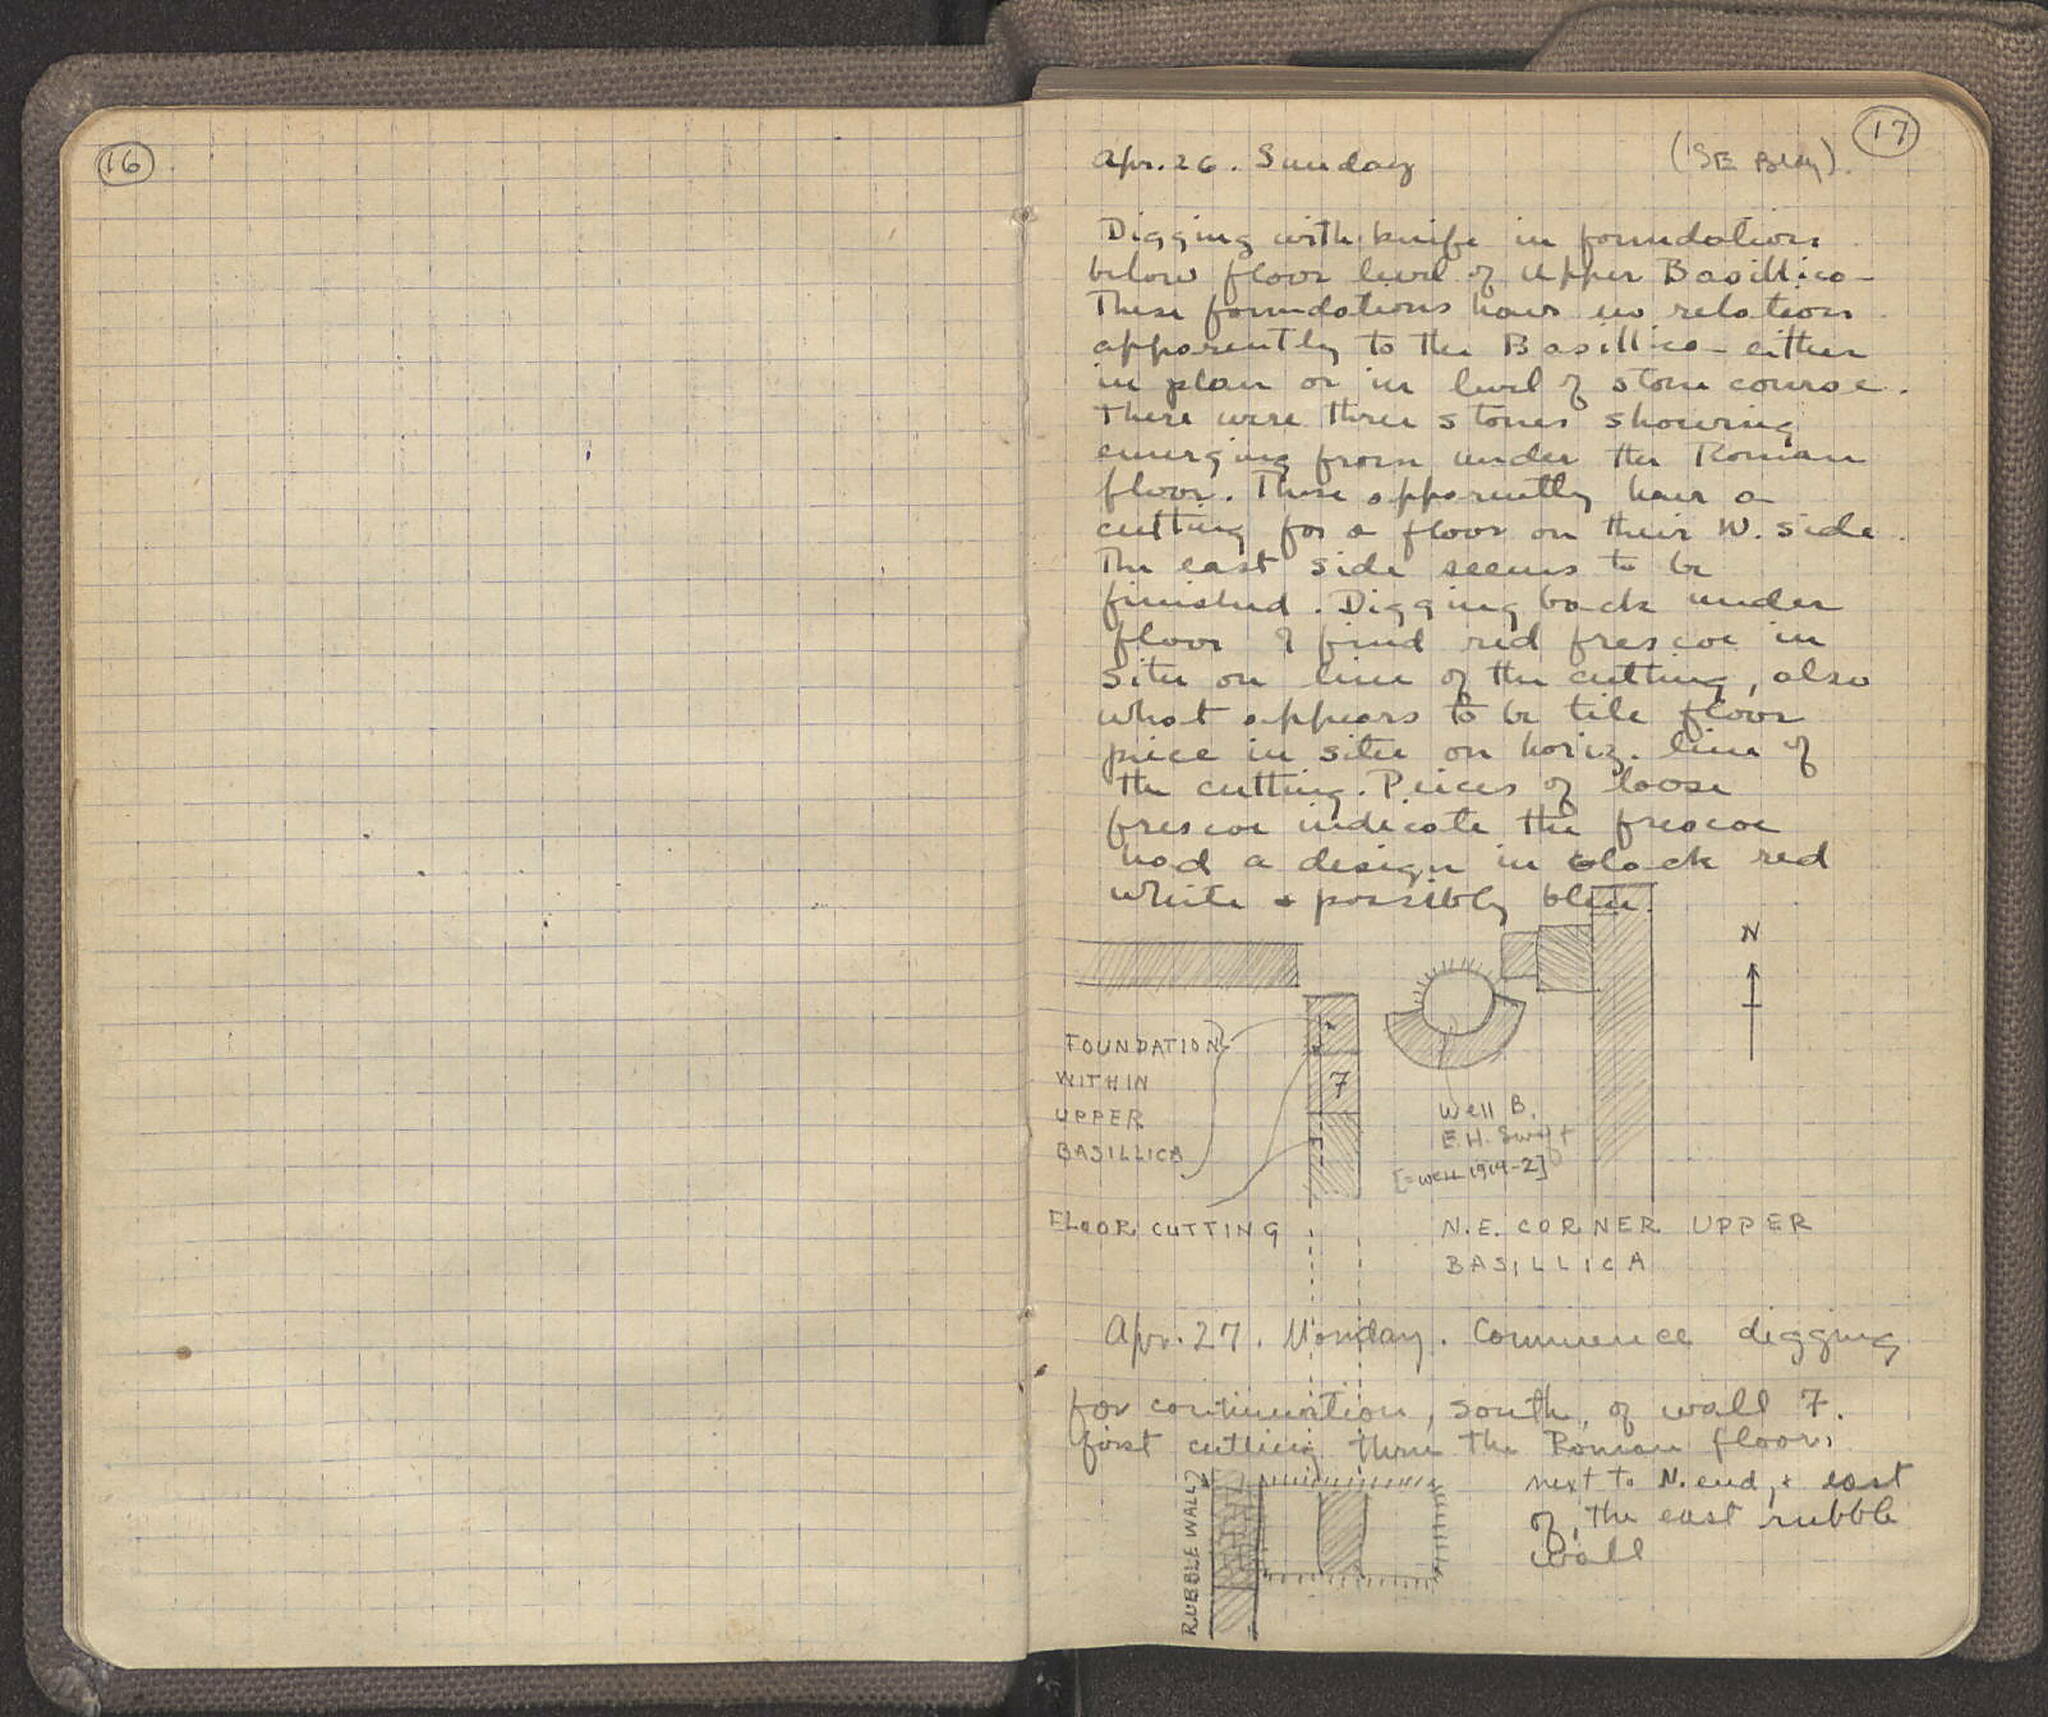 16
17
Apr. 26. Sunday (SE Bldg).
Digging with knife in foundations
below floor level of Upper Basillica -
These foundations have no relation
apparently to the Basillica - either
in plan or in level of stone course.
There were three stones showing
emerging from under the Roman
floor. These apparently have a
cutting for a floor on their W. side.
The east side seems to be
finished. Digging back under
floor I find red frescoe in
situ on line of the cutting, also
what appears to be tile floor
piece in situ on horiz. line of
the cutting. Peices of loose
frescoe indicate the frescoe
had a design in black red
white + possibly blue.
N
FOUNDATION
WITHIN
UPPER
BASILLICA
7
Well B.
E.H. Swift
[=well 1914-2]
FLOOR CUTTING
N.E. CORNER UPPER
BASILLICA
Apr. 27. Monday. Commence digging
for continuation, south, of wall 7.
first cutting thru the Roman floor,
next to N. end, + east
of, the east rubble
wall
RUBBLE WALL